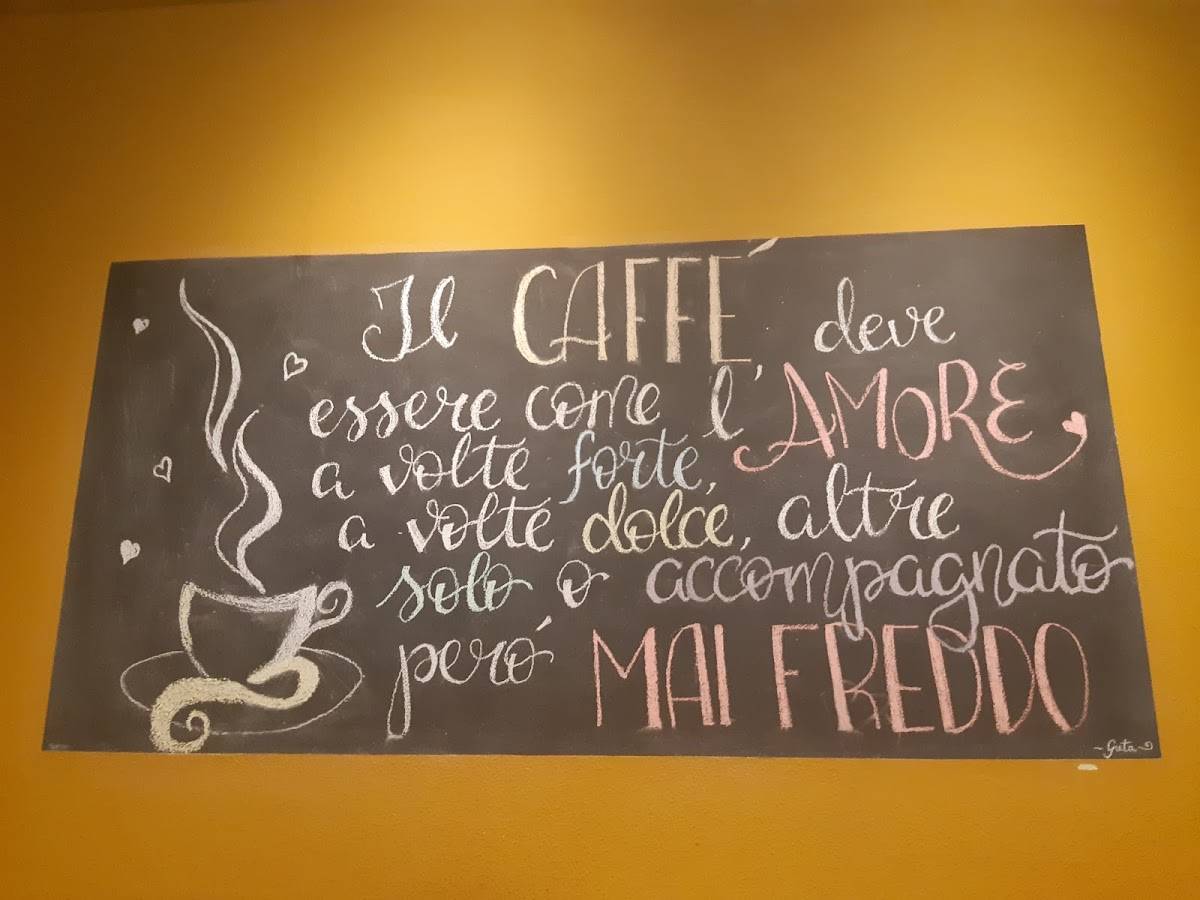 Il CAFFÉ deve
essere come l'AMORE
a volte forte,
a volte dolce, altre
solo o accompagnato
peró MAI FREDDO
~Greta~